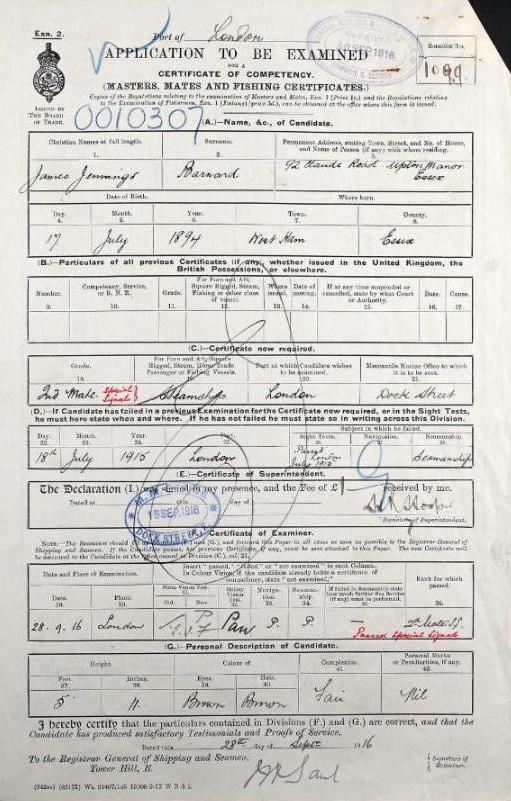 Exn. 2.
Port of London
APPLICATION TO BE EXAMINED
FOR A
CERTIFICATE OF COMPETENCY.
(MASTERS, MATES AND FISHING CERTIFICATES.)
ISSUED BY
THE BOARD
OF TRADE.
Copies of the Regulations relating to the examination of Masters and Mates, Exn. 1 (Price 1s.) and the Regulations relating
to the Examination of Fishermen, Exn. 1 (Fishing) (price 3d.), can be obtained at the office where this form is issued.
0010307
(A.)—Name, &c., of Candidate.
Christian Names at full length.
1.
Surname.
2.
Permanent Address, stating Town, Street, and No. of House,
and Name of Person (if any) with whom residing.
3.
James Jennings
Barnard
92 Claude Road Upton Manor
Essex
Date of Birth.
Where born.
Day.
4.
Month.
5.
Year.
6.
Town.
7.
County.
8.
17
July
1894
West Ham
Essex
(B.)—Particulars of all previous Certificates (if any), whether issued in the United Kingdom, the
British Possessions, or elsewhere.
Number.
9.
Competency, Service,
or R. N. R.
10.
Grade.
11.
For Fore and Aft,
Square Rigged, Steam,
Fishing or other class
of vessel.
12.
Where
issued.
13.
Date of
passing.
14.
If at any time suspended or
cancelled, state by what Court
or Authority.
15.
Date.
16.
Cause.
17.
(C.)—Certificate now required.
Grade.
18.
For Fore and Aft, Square
Rigged, Steam, Home Trade
Passenger or Fishing Vessels.
19.
Port at which Candidate wishes
to be examined.
20.
Mercantile Marine Office to which
it is to be sent.
21.
2nd Mate
Special
Signals
Steamship
London
Dock Street
(D.)—If Candidate has failed in a previous Examination for the Certificate now required, or in the Sight Tests,
he must here state when and where. If he has not failed he must state so in writing across this Division.
Day.
22.
Month.
23.
Year.
Subject in which he failed.
Sight Tests.
Navigation.
Seamanship.
18th
July
1915
London
London
July 1915
Seamanship
(E.)—Certificate of Superintendent.
The Declaration (I.) was signed in my presence, and the Fee of £1 received by me.
Dated at
this
day of
Signature of Superintendent.
15 SEP. 1916
DOCK STREET, E.
Certificate of Examiner.
Date and Place of Examination.
Insert "passed," "failed" or "not examined" in each Column.
In Colour Vision, if the candidate already holds a certificate of
competency, state "not examined."
If failed in Seamanship state
how much further Sea Service
(if any) must be performed.
Rank for which
passed.
Date.
Place.
30.
Form Vision Test.
Colour
Vision
Test.
Naviga-
tion.
Seaman-
ship.
28.9.16
London
P
Pass
P.
P.
—
2nd Mate SS
Passed Special Signals
(G.)—Personal Description of Candidate.
Height.
Colour of
Complexion.
41.
Personal Marks
or Peculiarities, if any.
42.
Feet.
37.
Inches.
38.
Eyes.
39.
Hair.
40.
5
11
Brown
Brown
Fair
Nil
I hereby certify that the particulars contained in Divisions (F.) and (G.) are correct, and that the
Candidate has produced satisfactory Testimonials and Proofs of Service.
Dated this 28th day of Sept 1916
To the Registrar General of Shipping and Seamen,
Tower Hill, E.
Signature of
Examiner.